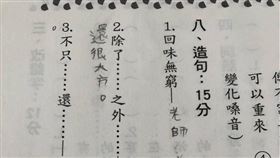 可以重來
變化嗓音)
八、造句：15分
1.回味無窮—老師
2.除了……之外……
還很大方。
3.不只……還……